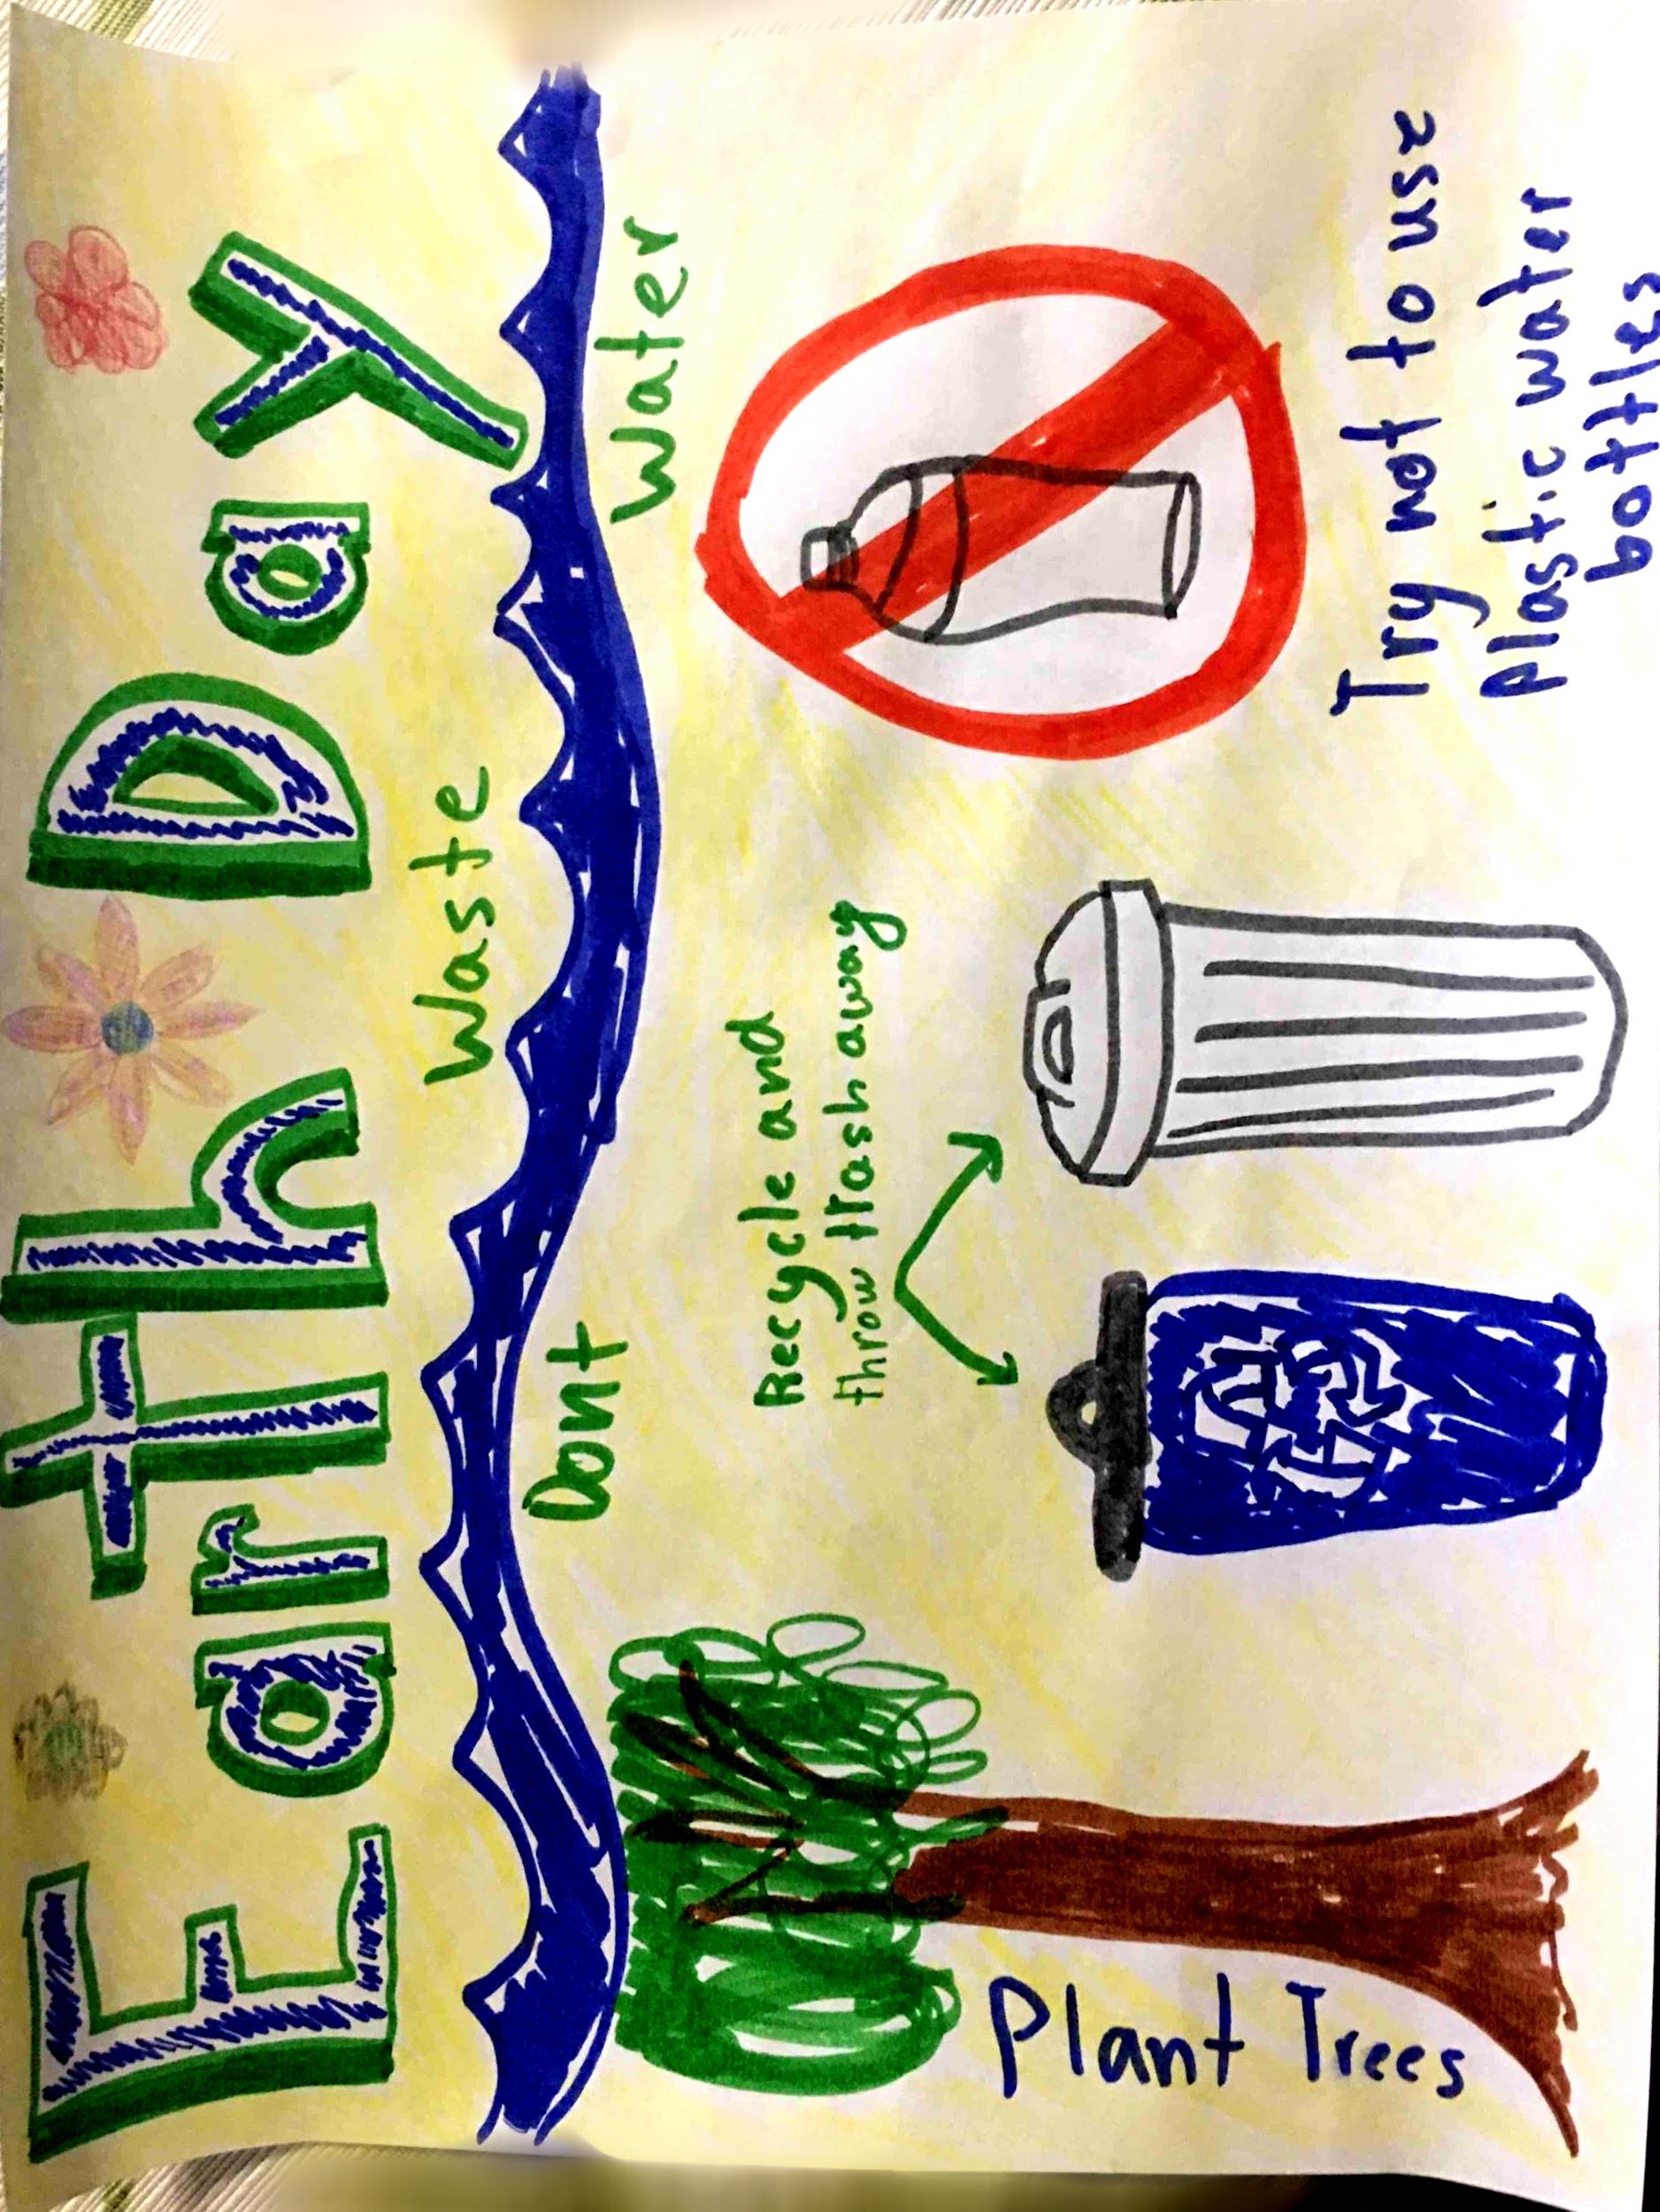 Earth Day
Dont Waste Water
Plant Trees
Recycle and
throw trash away
Try not to use
plastic water
bottles